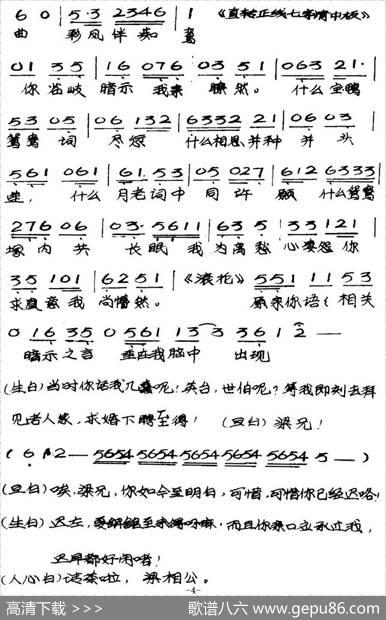 6 0 | 5·3 2346 | 1 《直转正线七字清中板》
曲 彩凤伴痴 鸾
01 35 | 16 076 | 03 51 | 063 21 |
你临岐暗示 我未瞭然。 什么宝鸭
53 05 | 06 132 | 6332 21 | 06 03 |
鸳鸯词 尽怨 什么相思并种 并头
561 061 | 61·53 | 05 027 | 612 6333 |
莲, 什么月老词中同许愿 什么鸳鸯
276 06 | 03· 5611 | 63 5 | 33 121 |
塚内共 长眠 我为离愁 心凄怨你
35 101 | 6251 | 《滚花》 551 1153
求凰意我 尚懵然。 原来你语语相关
0 16 35 0 561 13 3 361 2 —
暗示之言 重在我脑中 出现
(生白)当时你话我几蠢呢!英台,世伯呢?等我即刻去拜
见老人家,求婚下聘至得! (旦白)梁兄!
( 6 1 2 — 5654 5654 5654 5654 5654 5 — )
(旦白)唉,梁兄,你如今至明白,可惜,可惜你已经迟咯!
(生白)迟左,而且你亲口应承过我,
迟早都好闲啫!
(人心白)请茶啦, 梁相公。
-4-
高清下载 >>>
歌谱八六 www.gepu86.com